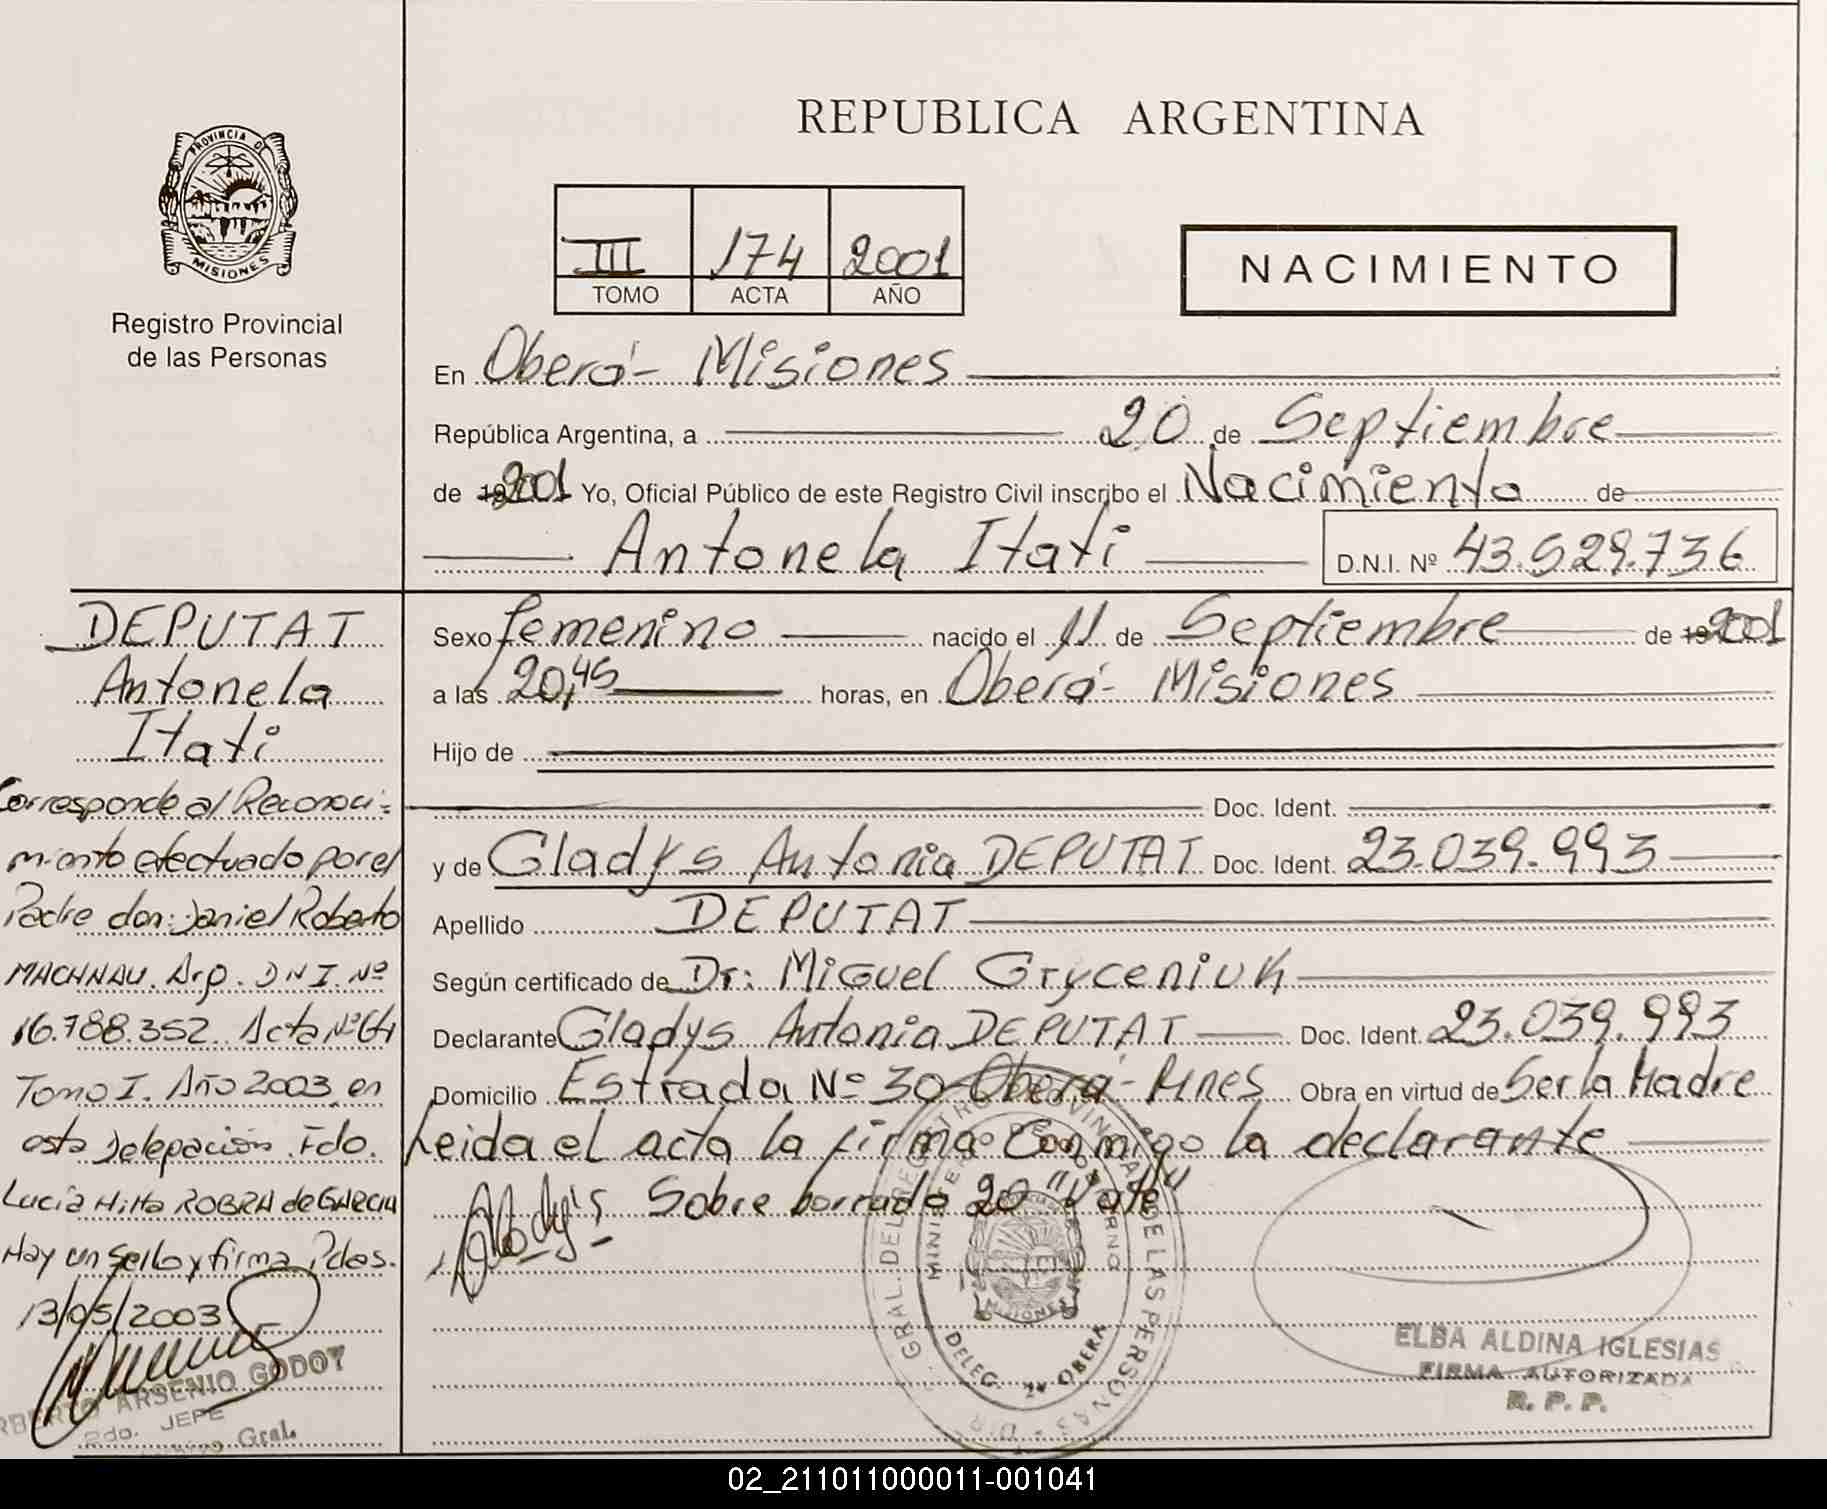 REPUBLICA ARGENTINA
PROVINCIA DE
MISIONES
Registro Provincial
de las Personas
III 174 2001
TOMO ACTA AÑO
NACIMIENTO
En Oberá- Misiones
República Argentina, a 20 de Septiembre
de 2001 Yo, Oficial Público de este Registro Civil inscribo el Nacimiento de
Antonela Itati D.N.I. Nº 43.529.736
DEPUTAT
Antonela
Itati
Corresponde al Reconoci-
miento efectuado por el
Padre don: Daniel Roberto
MACHNAU. Arg. DNI. Nº
16.788.352. Acta Nº 64
Tomo I. Año 2003 en
esta Delegación. Fdo.
Lucía ROBRA de GARCIA
Hay un sello y firma. Pdas.
13/05/2003
ARSENIO GODOY
2do. JEFE
Gral.
Sexo femenino nacido el 11 de Septiembre de 2001
a las 20,45 horas, en Oberá- Misiones
Hijo de
Doc. Ident.
y de Gladys Antonia DEPUTAT Doc. Ident. 23.039.993
Apellido DEPUTAT
Según certificado de Dr: Miguel Gryceniuk
Declarante Gladys Antonia DEPUTAT Doc. Ident. 23.039.993
Domicilio Estrada Nº 30 Oberá- Mnes Obra en virtud de Ser la Madre
Leida el acta la firma Conmigo la declarante
Sobre borrado 20 "Vale"
GRAL. DEL REGISTRO PROVINCIAL DE LAS PERSONAS - DIR.
MINISTERIO DE GOBIERNO
MISIONES
DELEG. 2ª OBERA
ELBA ALDINA IGLESIAS
FIRMA AUTORIZADA
R. P. P.
02_211011000011-001041